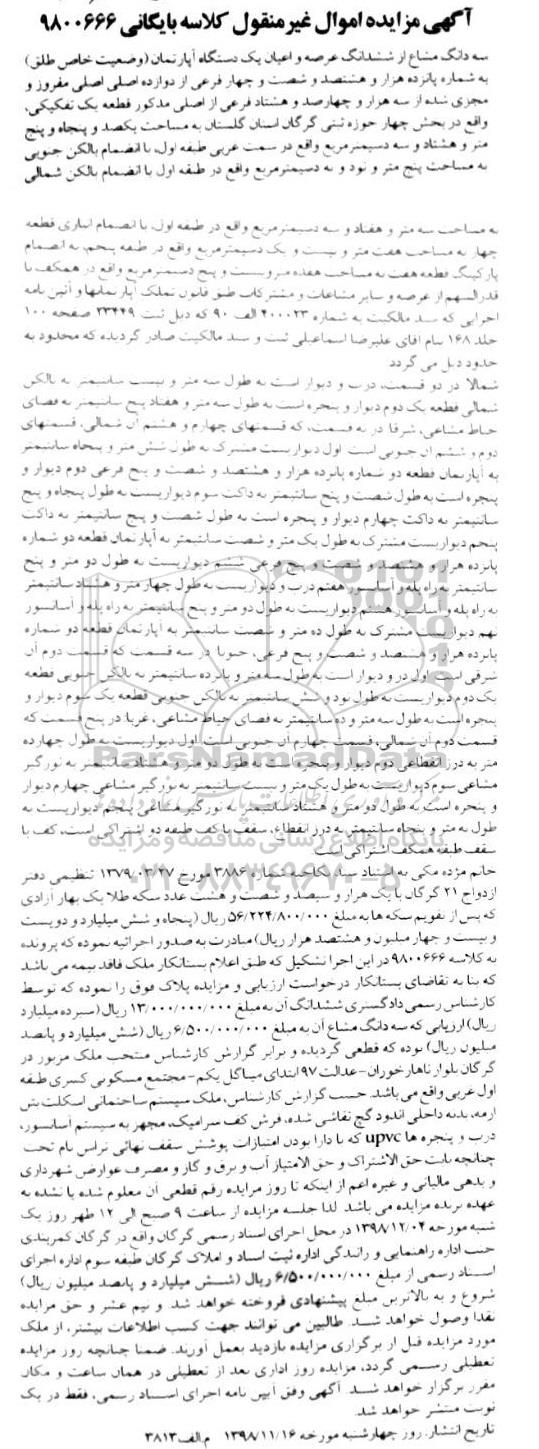 آگهی مزایده اموال غیر منقول کلاسه بایگانی ۹۸۰۰۶۶۶
سه دانگ مشاع از ششدانگ عرصه و اعیان یک دستگاه آپارتمان (وضعیت خاص طلق)
به شماره پانزده هزار و هشتصد و شصت و چهار فرعی از دوازده اصلی اصلی مفروز و
مجزی شده از سه هزار و چهارصد و هشتاد فرعی از اصلی مذکور قطعه یک تفکیکی،
واقع در بخش چهار حوزه ثبتی گرگان استان گلستان به مساحت یکصد و پنجاه و پنج
متر و هشتاد و سه دسیمترمربع واقع در سمت غربی طبقه اول، با انضمام بالکن جنوبی
به مساحت پنج متر و نود و نه دسیمترمربع واقع در طبقه اول با انضمام بالکن شمالی
به مساحت سه متر و هفتاد و سه دسیمترمربع واقع در طبقه اول، با انضمام انباری قطعه
چهار به مساحت هفت متر و بیست و یک دسیمترمربع واقع در طبقه پنجم، به انضمام
پارکینگ قطعه هفت به مساحت هفده متر و بیست و پنج دسیمتر مربع واقع در همکف با
قدرالسهم از عرصه و سایر مشاعات و مشترکات طبق قانون تملک آپارتمانها و آئین نامه
اجرایی که سند مالکیت به شماره ۴۰۰۰۲۳ الف ۹۰ که ذیل ثبت ۲۳۴۴۹ صفحه ۱۰۰
جلد ۱۶۸ بنام آقای علیرضا اسماعیلی ثبت و سند مالکیت صادر گردیده که محدود به
حدود ذیل می گردد
شمالا در دو قسمت، درب و دیوار است به طول سه متر و بیست سانتیمتر به بالکن
شمالی قطعه یک دوم دیوار و پنجره است به طول سه متر و هفتاد پنج سانتیمتر به فضای
حیاط مشاعی، شرقا در نه قسمت، که قسمتهای چهارم و هشتم آن شمالی، قسمتهای
دوم و ششم آن جنوبی است اول دیواریست مشترک به طول شش متر و پنجاه سانتیمتر
به آپارتمان قطعه دو شماره پانزده هزار و هشتصد و شصت و پنج فرعی دوم دیوار و
پنجره است به طول شصت و پنج سانتیمتر به داکت سوم دیواریست به طول پنجاه و پنج
سانتیمتر به داکت چهارم دیوار و پنجره است به طول شصت و پنج سانتیمتر به داکت
پنجم دیواریست مشترک به طول یک متر و شصت سانتیمتر به آپارتمان قطعه دو شماره
پانزده هزار و هشتصد و شصت و پنج فرعی ششم دیواریست به طول دو متر و پنج
سانتیمتر به راه پله و آسانسور هفتم درب و دیواریست به طول چهار متر و هشتاد سانتیمتر
به راه پله و آسانسور هشتم دیواریست به طول دو متر و پنج سانتیمتر به راه پله و آسانسور
نهم دیواریست مشترک به طول ده متر و شصت سانتیمتر به آپارتمان قطعه دو شماره
پانزده هزار و هشتصد و شصت و پنج فرعی، جنوبا در سه قسمت که قسمت دوم آن
شرقی است اول در و دیوار است به طول سه متر و پانزده سانتیمتر به بالکن جنوبی قطعه
یک دوم دیواریست به طول نود و شش سانتیمتر به بالکن جنوبی قطعه یک سوم دیوار و
پنجره است به طول سه متر و ده سانتیمتر به فضای حیاط مشاعی، غربا در پنج قسمت که
قسمت دوم آن شمالی، قسمت چهارم آن جنوبی است اول، دیواریست به طول چهارده
متر به درز انقطاعی دوم دیوار و پنجره است به طول دو متر و هشتاد سانتیمتر به نورگیر
مشاعی سوم دیواریست به طول یک متر و بیست سانتیمتر به نورگیر مشاعی چهارم دیوار
و پنجره است به طول دو متر و هشتاد سانتیمتر به نورگیر مشاعی پنجم دیواریست به
طول نه متر و پنجاه سانتیمتر به درز انقطاع، سقف با کف طبقه دو اشتراکی است، کف با
سقف طبقه همکف اشتراکی است
خانم مژده مکی به استناد سند نکاحیه شماره ۳۸۸۶ مورخ ۱۳۷۹/۰۳/۲۷ تنظیمی دفتر
ازدواج ۲۱ گرگان با یک هزار و سیصد و شصت و هشت عدد سکه طلا یک بهار آزادی
که پس از تقویم سکه ها به مبلغ ۵۶/۲۲۴/۸۰۰/۰۰۰ ریال (پنجاه و شش میلیارد و دویست
و بیست و چهار میلیون و هشتصد هزار ریال) مبادرت به صدور اجرائیه نموده که پرونده
به کلاسه ۹۸۰۰۶۶۶ در این اجرا تشکیل که طبق اعلام بستانکار ملک فاقد بیمه می باشد
که بنا به تقاضای بستانکار درخواست ارزیابی و مزایده پلاک فوق را نموده که توسط
کارشناس رسمی دادگستری ششدانگ آن به مبلغ ۱۳/۰۰۰/۰۰۰/۰۰۰ ریال (سیزده میلیارد
ریال) ارزیابی که سه دانگ مشاع آن به مبلغ ۶/۵۰۰/۰۰۰/۰۰۰ ریال (شش میلیارد و پانصد
میلیون ریال) بوده که قطعی گردیده و برابر گزارش کارشناس منتخب ملک مزبور در
گرگان بلوار ناهارخوران-عدالت ۹۷ ابتدای میناگل یکم-مجتمع مسکونی کسری طبقه
اول غربی واقع می باشد. حسب گزارش کارشناس، ملک سیستم ساختمانی اسکلت بتن
آرمه، بدنه داخلی اندود گچ نقاشی شده، فرش کف سرامیک، مجهز به سیستم آسانسور،
درب و پنجره ها upvc که با دارا بودن امتیازات پوشش سقف نهائی تراس بام تحت
چنانچه بابت حق الاشتراک و حق الامتیاز آب و برق و گاز و مصرف عوارض شهرداری
و بدهی مالیاتی و غیره اعم از اینکه تا روز مزایده رقم قطعی آن معلوم شده یا نشده به
عهده برنده مزایده می باشد لذا جلسه مزایده از ساعت ۹ صبح الی ۱۲ ظهر روز یک
شنبه مورخه ۱۳۹۸/۱۲/۰۴ در محل اجرای اسناد رسمی گرگان واقع در گرگان کمربندی
جنب اداره راهنمایی و رانندگی اداره ثبت اسناد و املاک گرگان طبقه سوم اداره اجرای
اسناد رسمی از مبلغ ۶/۵۰۰/۰۰۰/۰۰۰ ریال (شش میلیارد و پانصد میلیون ریال)
شروع و به بالاترین مبلغ پیشنهادی فروخته خواهد شد و نیم عشر و حق مزایده
نقدا وصول خواهد شد. طالبین می توانند جهت کسب اطلاعات بیشتر، از ملک
مورد مزایده قبل از برگزاری مزایده بازدید بعمل آورند. ضمنا چنانچه روز مزایده
تعطیلی رسمی گردد، مزایده روز اداری بعد از تعطیلی در همان ساعت و مکان
مقرر برگزار خواهد شد. آگهی وفق آیین نامه اجرای اسناد رسمی، فقط در یک
نوبت منتشر خواهد شد
تاریخ انتشار: روز چهارشنبه مورخه ۱۳۹۸/۱۱/۱۶ م.الف۳۸۱۳
ParsNamadData
پایگاه اطلاع رسانی مناقصه و مزایده
۰۲۱-۸۸۳۴۹۶۷۰-۵